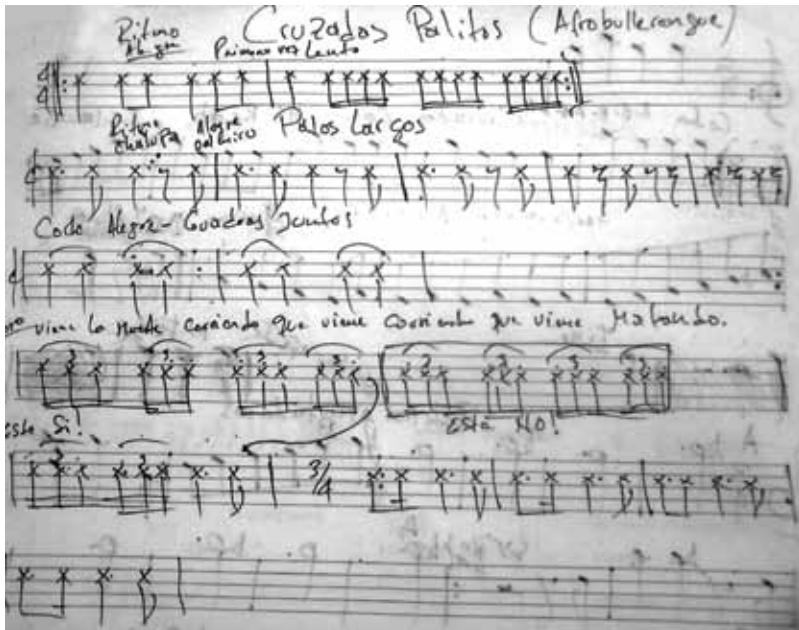 Cruzados Palitos (Afrobullerengue)
Ritmo Alegre Primera vez Lento
4/4
Ritmo chalupa Alegre Palos Largos
Corto Alegre - Cuadras Juntos
viene la Muerte corriendo que viene corriendo que viene Matando.
3 3 3 3 3 3 3 3
este Si! Esta NO!
3 3 3/4